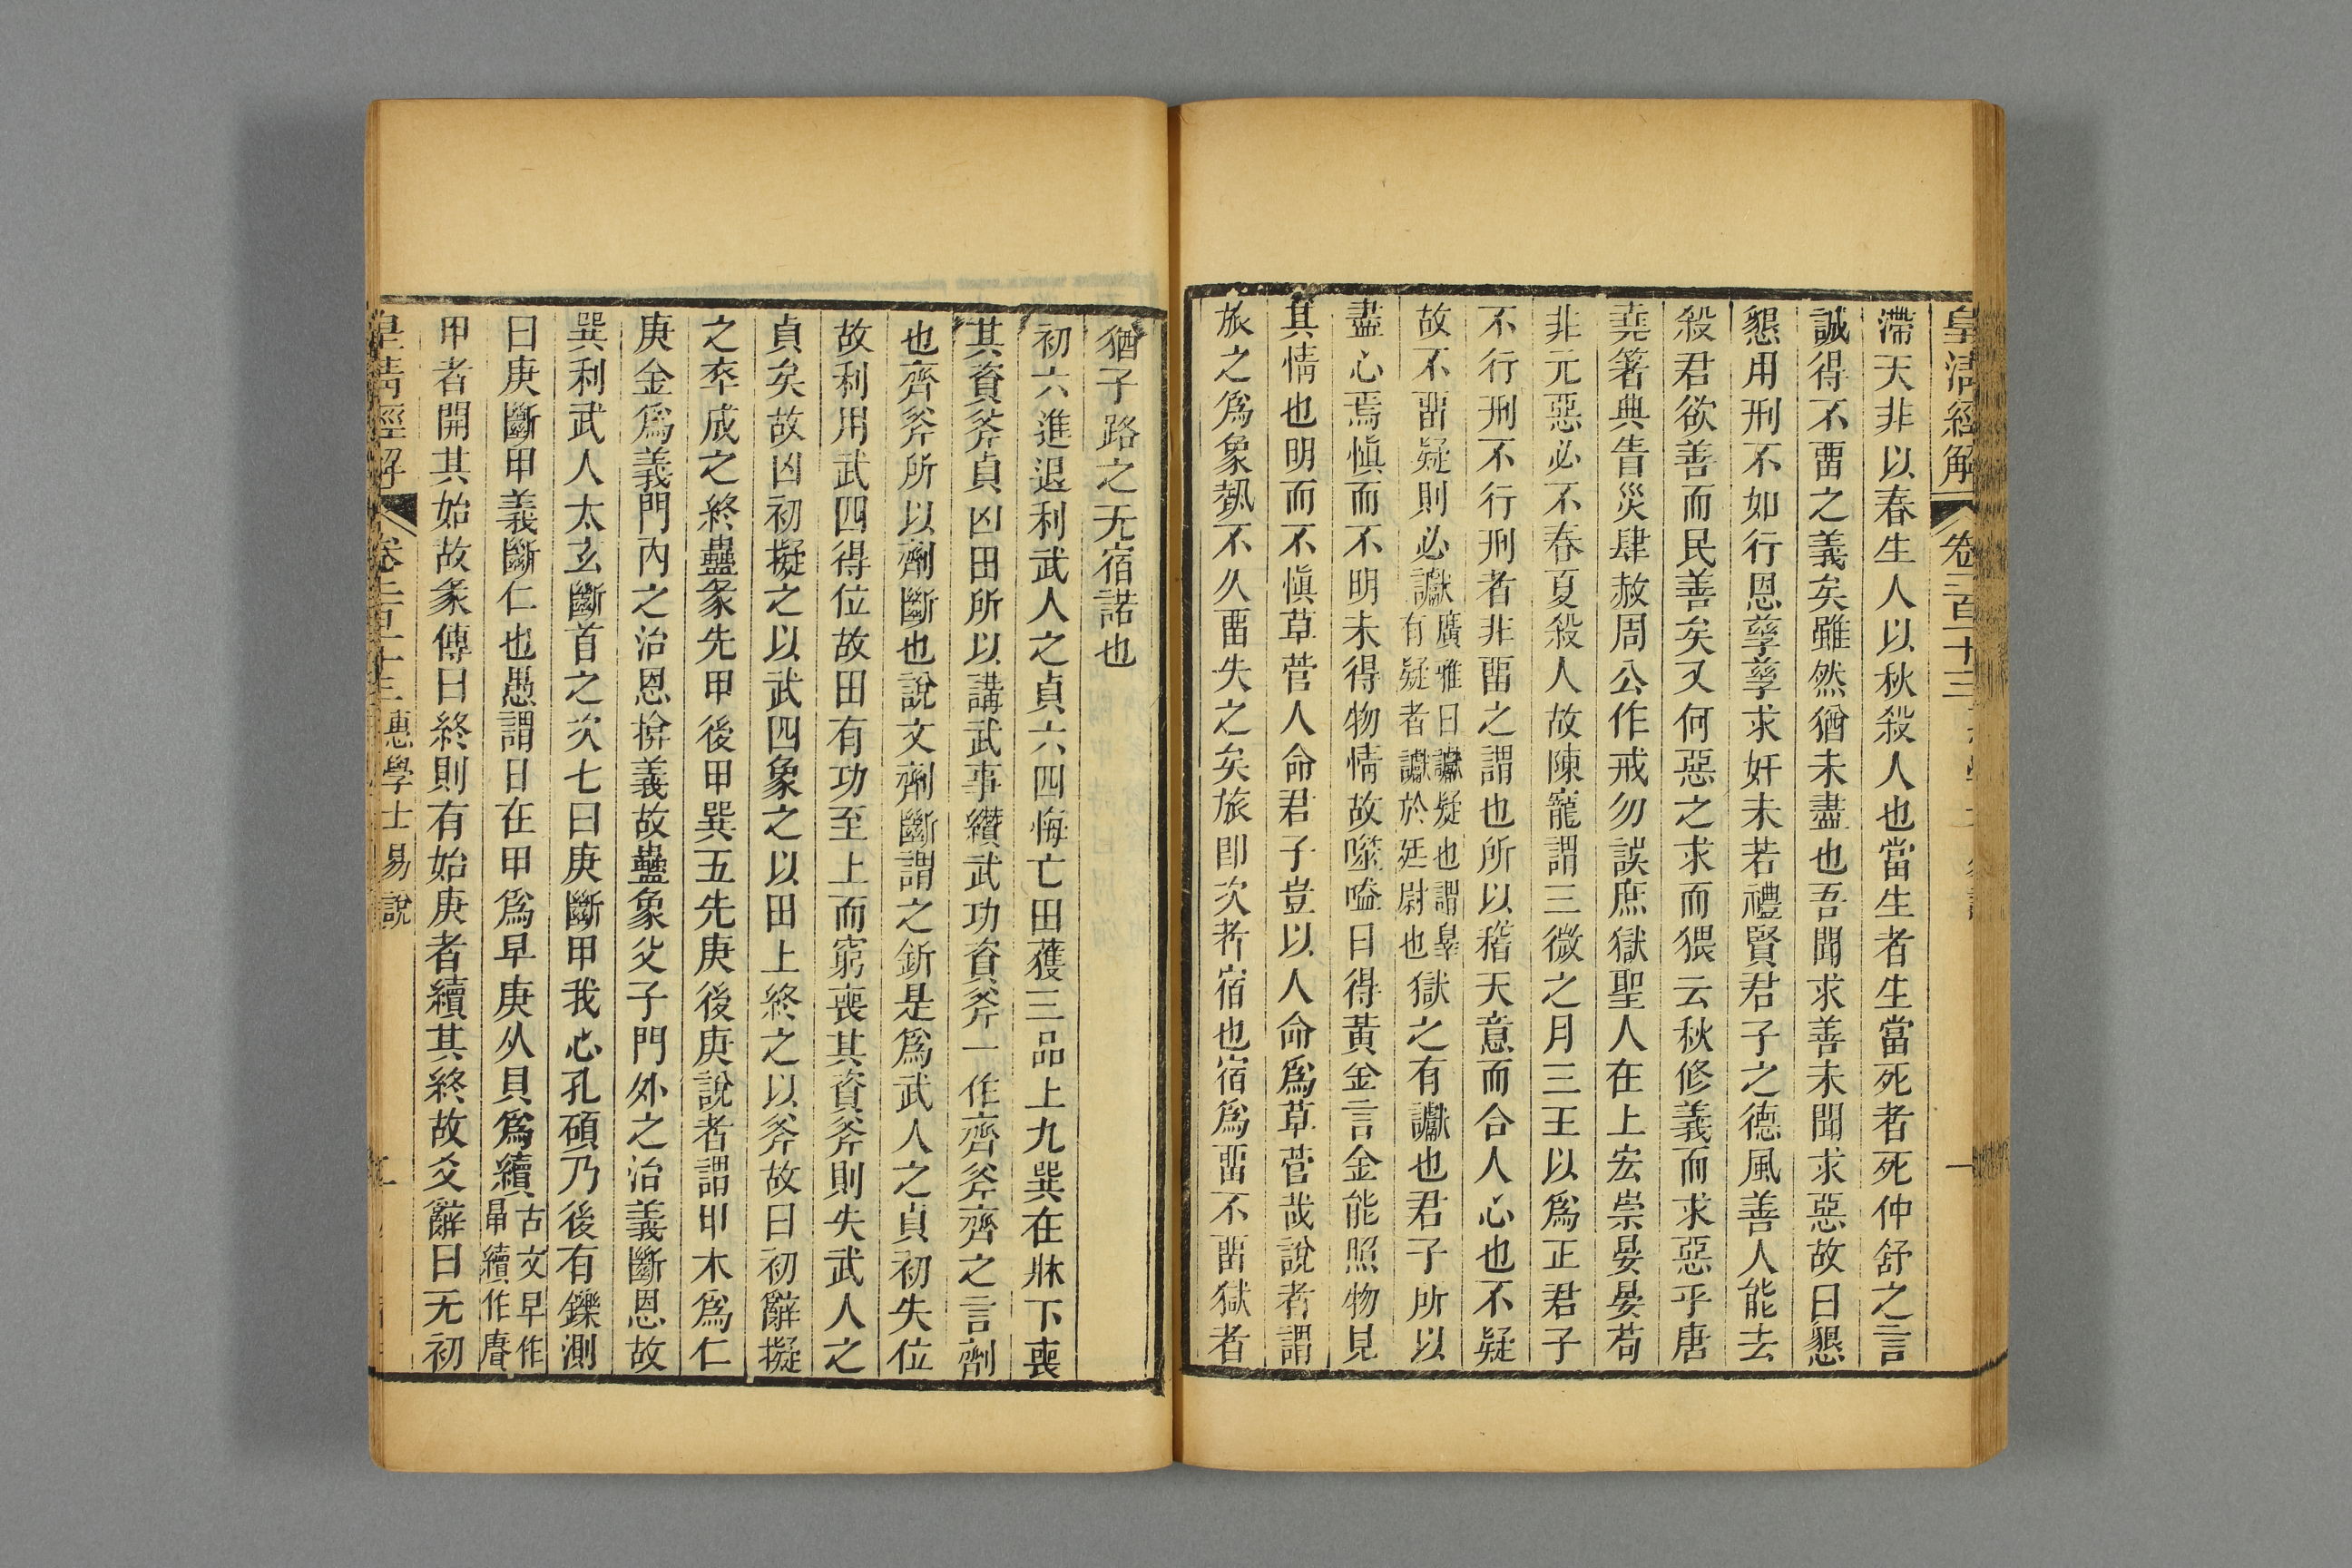 皇清經解 卷二百十三
滯天非以春生人以秋殺人也當生者生當死者死仲舒之言
誠得不畱之義矣雖然猶未盡也吾聞求善未聞求惡故曰懇
懇用刑不如行恩孳孳求奸未若禮賢君子之德風善人能去
殺君欲善而民善矣又何惡之求而猥云秋修義而求惡乎唐
堯箸典眚災肆赦周公作戒勿誤庶獄聖人在上宏崇晏晏苟
非元惡必不春夏殺人故陳寵謂三微之月三王以爲正君子
不行刑不行刑者非畱之謂也所以稽天意而合人心也不疑
故不畱疑則必讞廣雅曰讞疑也謂辠有疑者讞於廷尉也獄之有讞也君子所以
盡心焉愼而不明未得物情故噬嗑曰得黃金言金能照物見
其情也明而不愼草菅人命君子豈以人命爲草菅哉說者謂
旅之爲象埶不久畱失之矣旅卽次者宿也宿爲畱不畱獄者
猶子路之无宿諾也
初六進退利武人之貞六四悔亡田獲三品上九巽在牀下喪
其資斧貞凶田所以講武事纘武功資斧一作齊斧齊之言劑
也齊斧所以劑斷也說文劑斷謂之釿是爲武人之貞初失位
故利用武四得位故田有功至上而窮喪其資斧則失武人之
貞矣故凶初擬之以武四象之以田上終之以斧故曰初辭擬
之卒成之終蠱彖先甲後甲巽五先庚後庚說者謂甲木爲仁
庚金爲義門內之治恩揜義故蠱象父子門外之治義斷恩故
巽利武人太玄斷首之次七曰庚斷甲我心孔碩乃後有鑠測
曰庚斷甲義斷仁也愚謂日在甲爲早庚从貝爲續古文早作𣆅續作賡
甲者開其始故彖傳曰終則有始庚者續其終故爻辭曰无初
皇清經解 卷二百十三 惠學士易說 二